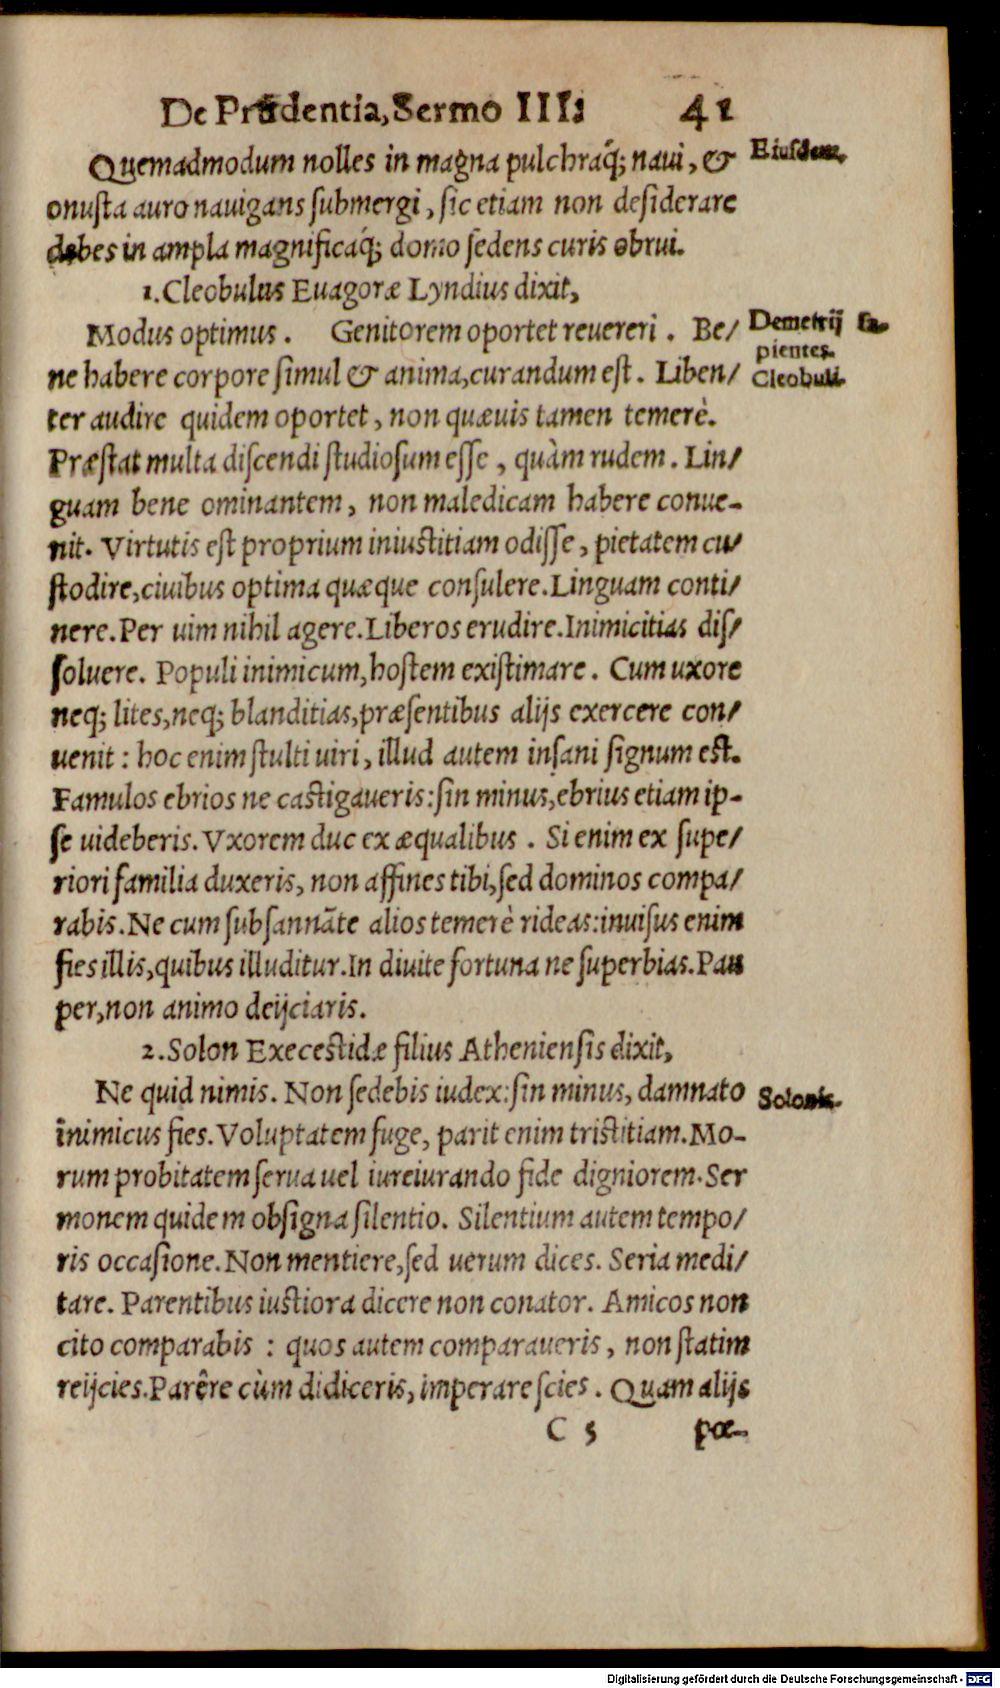 De Prudentia, Sermo III. 41
Quemadmodum nolles in magna pulchraq́; naui, & Eiusdem.
onusta auro nauigans submergi, sic etiam non desiderare
debes in ampla magnificaq́; domo sedens curis obrui.
1. Cleobulus Euagoræ Lyndius dixit,
Modus optimus. Genitorem oportet reuereri. Be/ Demetrij sa-
pientes.
ne habere corpore simul & anima, curandum est. Liben/ Cleobuli.
ter audire quidem oportet, non quæuis tamen temerè.
Præstat multa discendi studiosum esse, quàm rudem. Lin/
guam bene ominantem, non maledicam habere conue-
nit. Virtutis est proprium iniustitiam odisse, pietatem cu/
stodire, ciuibus optima quæque consulere. Linguam conti/
nere. Per uim nihil agere. Liberos erudire. Inimicitias dis/
soluere. Populi inimicum, hostem existimare. Cum uxore
neq; lites, neq; blanditias, præsentibus alijs exercere con/
uenit: hoc enim stulti uiri, illud autem insani signum est.
Famulos ebrios ne castigaueris: sin minus, ebrius etiam ip-
se uideberis. Vxorem duc ex æqualibus. Si enim ex supe/
riori familia duxeris, non affines tibi, sed dominos compa/
rabis. Ne cum subsannãte alios temerè rideas: inuisus enim
fies illis, quibus illuditur. In diuite fortuna ne superbias. Pau
per, non animo deijciaris.
2. Solon Execestidæ filius Atheniensis dixit,
Ne quid nimis. Non sedebis iudex: sin minus, damnato Solonis.
inimicus fies. Voluptatem fuge, parit enim tristitiam. Mo-
rum probitatem serua uel iureiurando fide digniorem. Ser
monem quidem obsigna silentio. Silentium autem tempo/
ris occasione. Non mentiere, sed uerum dices. Seria medi/
tare. Parentibus iustiora dicere non conator. Amicos non
cito comparabis: quos autem comparaueris, non statim
reijcies. Parêre cùm didiceris, imperare scies. Quam alijs
C 5 pœ-
Digitalisierung gefördert durch die Deutsche Forschungsgemeinschaft - DFG